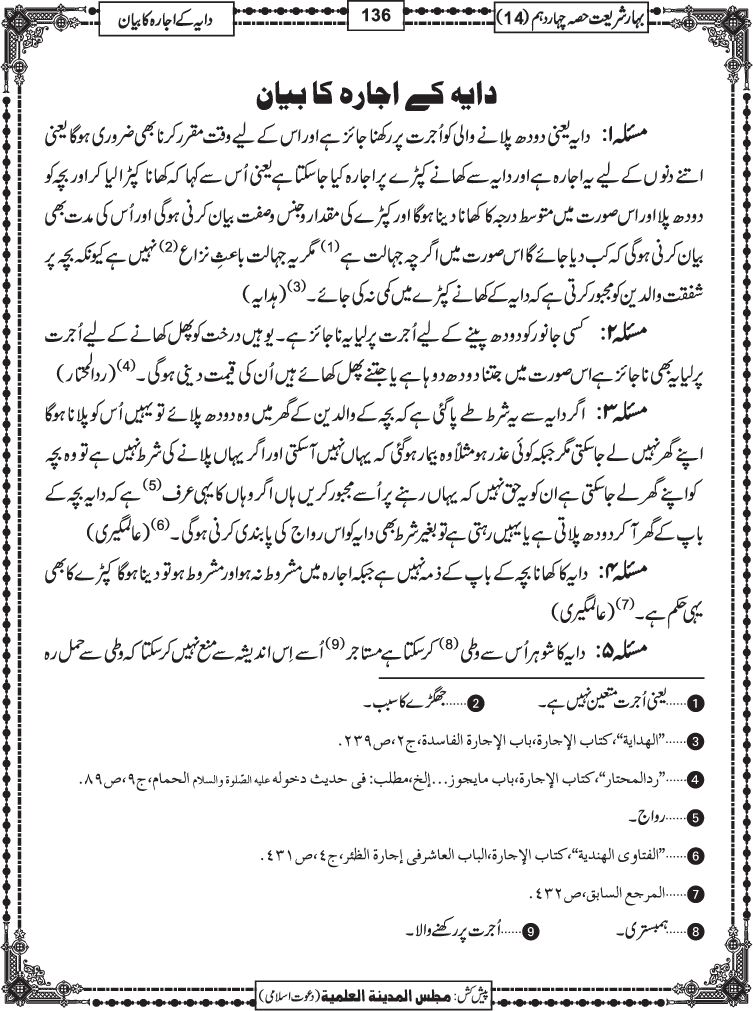 بہار شریعت حصہ چہاردہم (14)
136
دایہ کے اجارہ کا بیان
دایہ کے اجارہ کا بیان
مسئلہ ۱: دایہ یعنی دودھ پلانے والی کو اُجرت پر رکھنا جائز ہے اور اس کے لیے وقت مقرر کرنا بھی ضروری ہوگا یعنی
اتنے دنوں کے لیے یہ اجارہ ہے اور دایہ سے کھانے کپڑے پر اجارہ کیا جاسکتا ہے یعنی اُس سے کہا کہ کھانا کپڑا لیا کر اور بچہ کو
دودھ پلا اور اس صورت میں متوسط درجہ کا کھانا دینا ہوگا اور کپڑے کی مقدار و جنس و صفت بیان کرنی ہوگی اور اُس کی مدت بھی
بیان کرنی ہوگی کہ کب دیا جائے گا اس صورت میں اگرچہ جہالت ہے (1) مگر یہ جہالت باعثِ نزاع (2) نہیں ہے کیونکہ بچہ پر
شفقت والدین کو مجبور کرتی ہے کہ دایہ کے کھانے کپڑے میں کمی نہ کی جائے۔ (3) (ہدایہ)
مسئلہ ۲: کسی جانور کو دودھ پینے کے لیے اُجرت پر لیا یہ ناجائز ہے۔ یوہیں درخت کو پھل کھانے کے لیے اُجرت
پر لیا یہ بھی ناجائز ہے اس صورت میں جتنا دودھ دوہا ہے یا جتنے پھل کھائے ہیں اُن کی قیمت دینی ہوگی۔ (4) (ردالمحتار)
مسئلہ ۳: اگر دایہ سے یہ شرط طے پاگئی ہے کہ بچہ کے والدین کے گھر میں وہ دودھ پلائے تو یہیں اُس کو پلانا ہوگا
اپنے گھر نہیں لے جاسکتی مگر جبکہ کوئی عذر ہو مثلاً وہ بیمار ہوگئی کہ یہاں نہیں آسکتی اور اگر یہاں پلانے کی شرط نہیں ہے تو وہ بچہ
کو اپنے گھر لے جاسکتی ہے ان کو یہ حق نہیں کہ یہاں رہنے پر اُسے مجبور کریں ہاں اگر وہاں کا یہی عرف (5) ہے کہ دایہ بچہ کے
باپ کے گھر آکر دودھ پلاتی ہے یا یہیں رہتی ہے تو بغیر شرط بھی دایہ کو اس رواج کی پابندی کرنی ہوگی۔ (6) (عالمگیری)
مسئلہ ۴: دایہ کا کھانا بچہ کے باپ کے ذمہ نہیں ہے جبکہ اجارہ میں مشروط نہ ہو اور مشروط ہو تو دینا ہوگا کپڑے کا بھی
یہی حکم ہے۔ (7) (عالمگیری)
مسئلہ ۵: دایہ کا شوہر اُس سے وطی (8) کرسکتا ہے مستاجر (9) اُسے اِس اندیشہ سے منع نہیں کرسکتا کہ وطی سے حمل رہ
1 ......یعنی اُجرت متعین نہیں ہے۔ 2 ......جھگڑے کا سبب۔
3 ......"الھدایة"، کتاب الإجارة، باب الإجارة الفاسدة، ج٢، ص٢٣٩.
4 ......"ردالمحتار"، کتاب الإجارة، باب مایجوز...إلخ، مطلب: فی حدیث دخولہ علیہ الصّلوة والسلام الحمام، ج٩، ص٨٩.
5 ......رواج۔
6 ......"الفتاوی الھندیة"، کتاب الإجارة، الباب العاشر فی إجارة الظئر، ج٤، ص٤٣١.
7 ......المرجع السابق، ص٤٣٢.
8 ......ہمبستری۔ 9 ......اُجرت پر رکھنے والا۔
پیش کش: مجلس المدینة العلمیة (دعوت اسلامی)